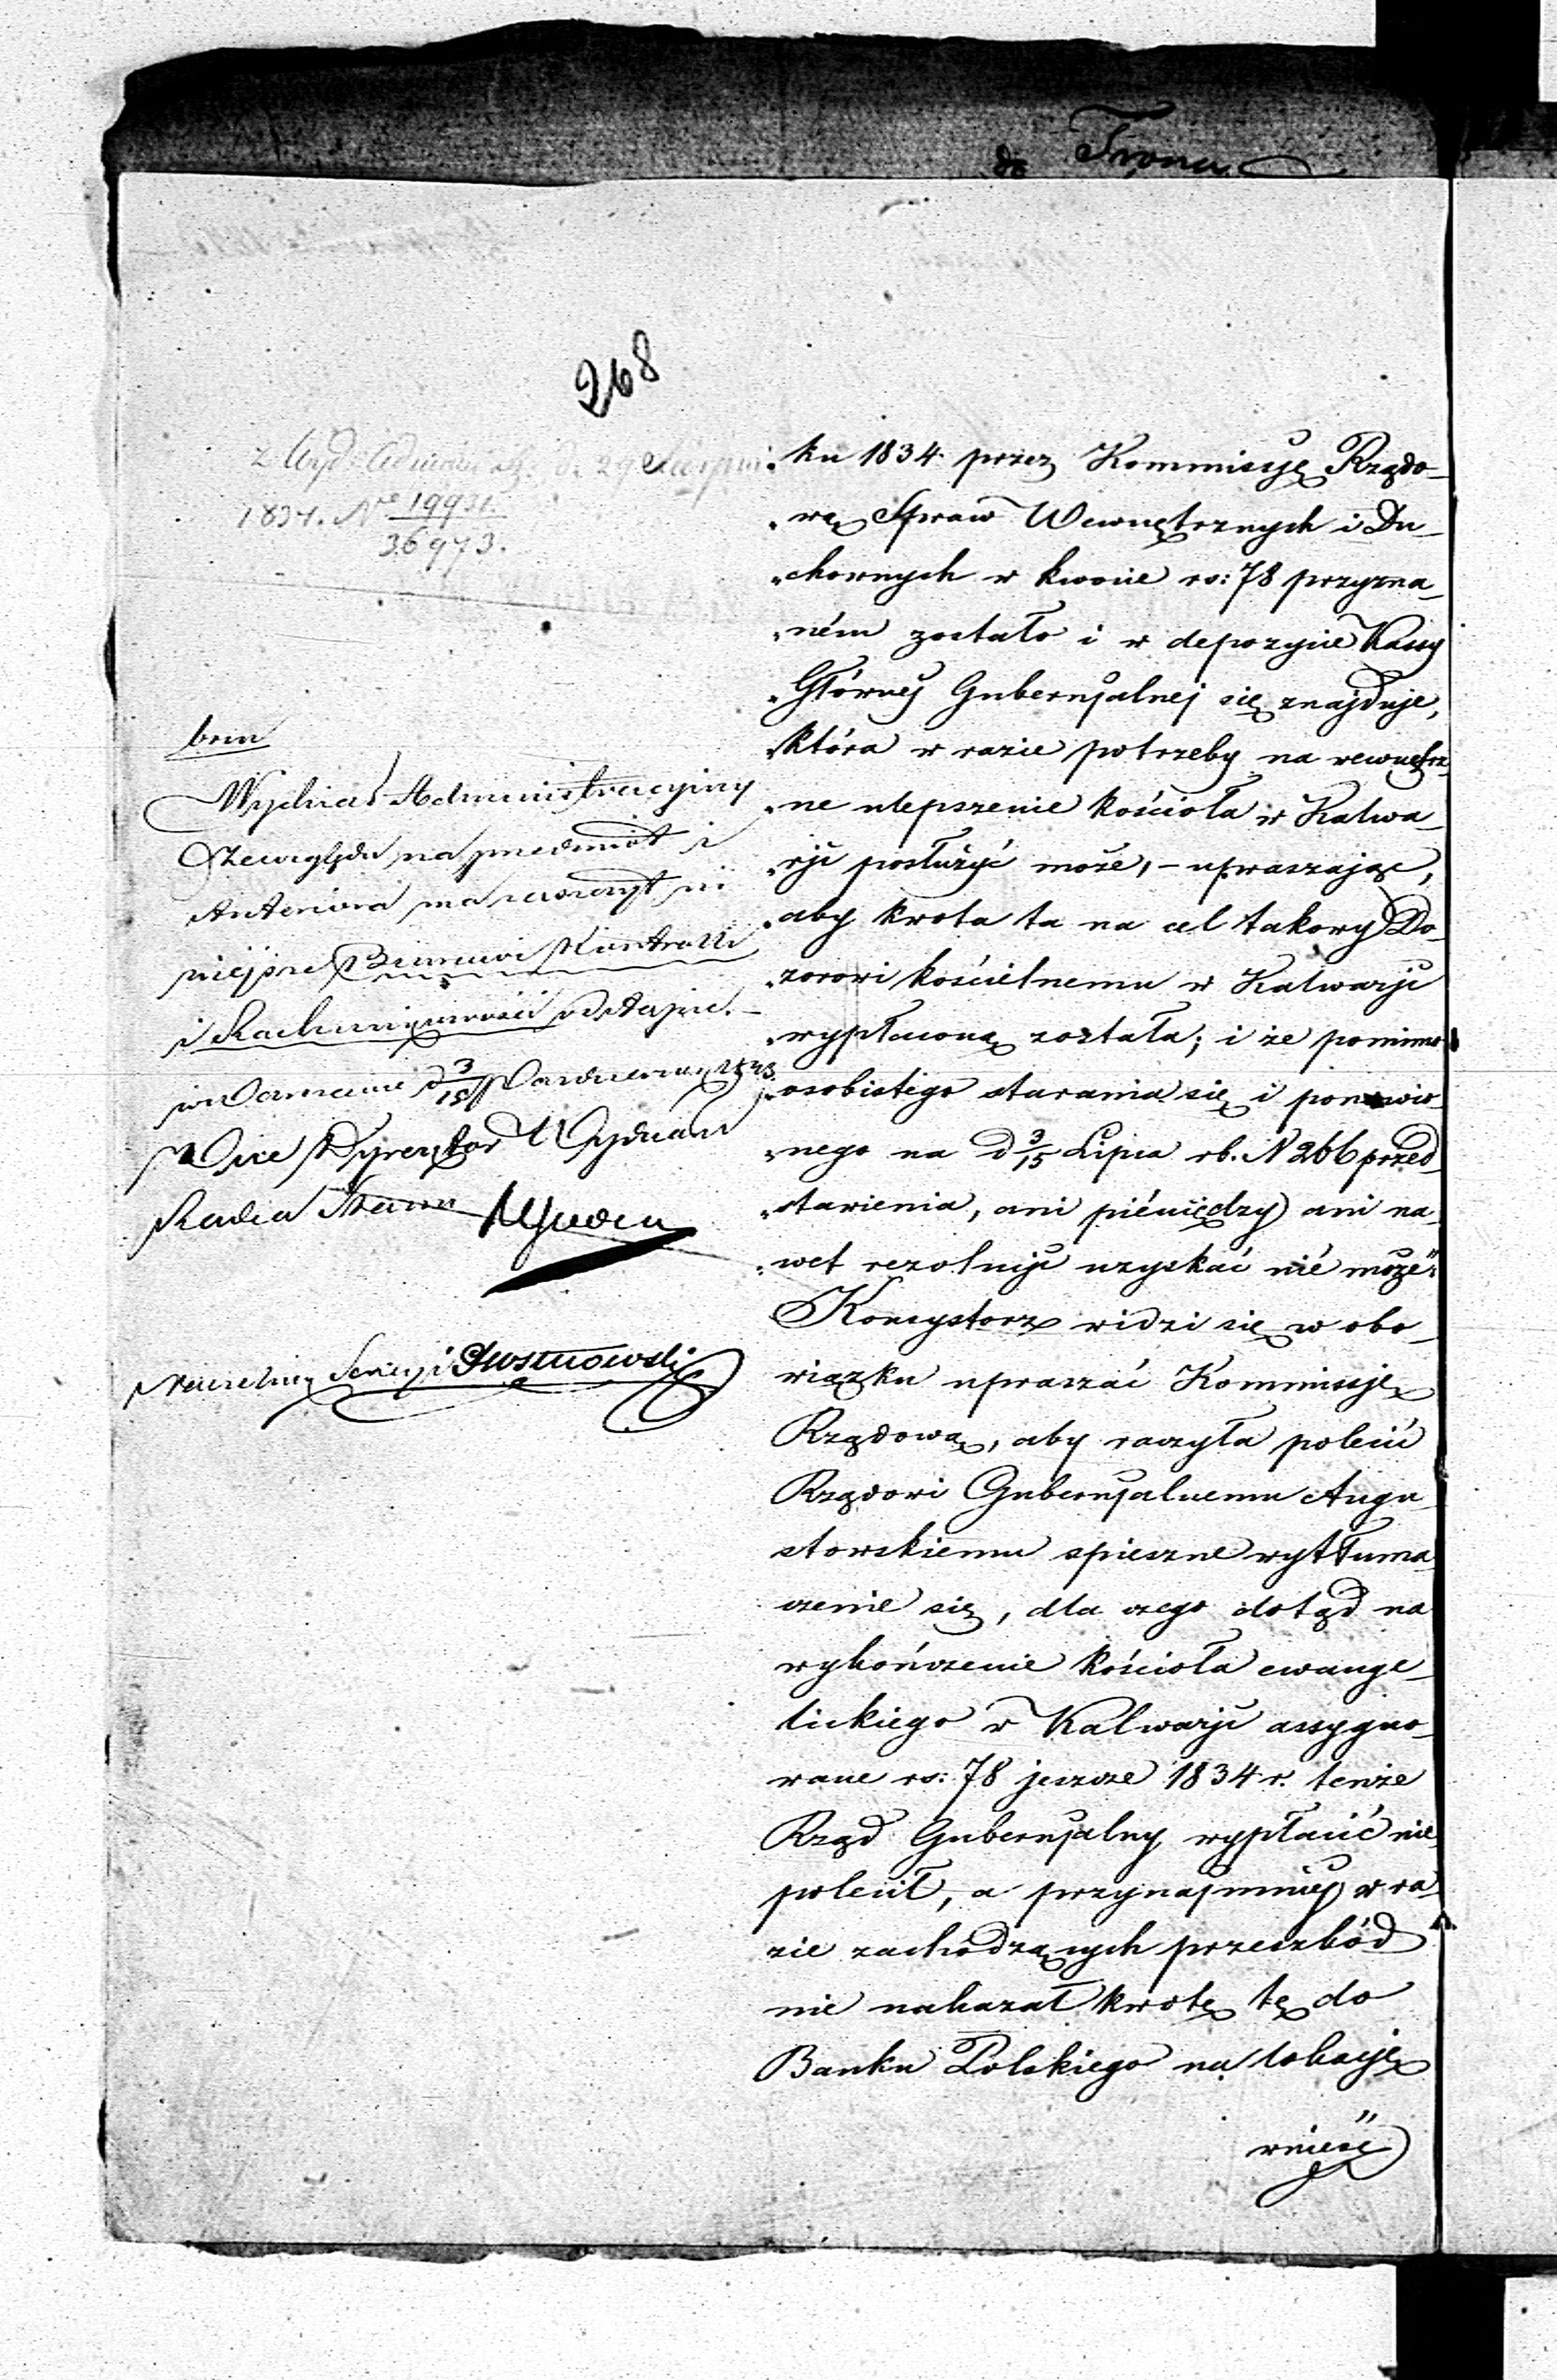 do Tronu
268
z Wyd: Admin: d. 29 Sierpnia
1834. No 19931.
36973.
brm
Wydział Administracyjny
Ze względu na przedmiot i
Anteriora ma zaszczyt ni
niejsze Biurowi Kontrolli
i Rachunkowości odstąpić.
w Warszawie d 3/15 Października 1843.
Vice Dyrektor Wydziału
Radca Stanu
Naczelnik Sekcyi
ku 1834 przez Kommissyę Rządo-
wą Spraw Wewnętrznych i Du-
chownych w kwocie rs: 78 przyzna-
ném zostało i w depozycie Kassy
Głównéj Gubernjalnej się znajduje,
która w razie potrzeby na wewnętrz-
ne ulepszenie kościoła w Kalwa-
rji posłużyć może, – upraszając,
aby kwota ta na cel takowy Do-
zorowi kościelnemu w Kalwarji
wypłaconą została; i że pomimo
osobistego starania się i ponowio-
nego na d 3/15 Lipca rb. N 266 przed-
stawienia, ani piéniędzy ani na-
wet rezolucji uzyskać nié może"
Konsystorz widzi się w obo-
wiązku upraszać Kommissję
Rządową, aby raczyła polecić
Rządowi Gubernjalnemu Augu-
stowskiemu spieszne wytłuma-
czenie się, dla czego dotąd na
wykończenie kościoła ewange-
lickiego w Kalwarji assygno-
wane rs: 78 jeszcze 1834 r. tenże
Rząd Gubernjalny wypłacić nie
polecił, a przynajmniéj w ra-
zie zachodzących przeszkód
nie nakazał kwotę tę do
Banku Polskiego na lokację
wnieść